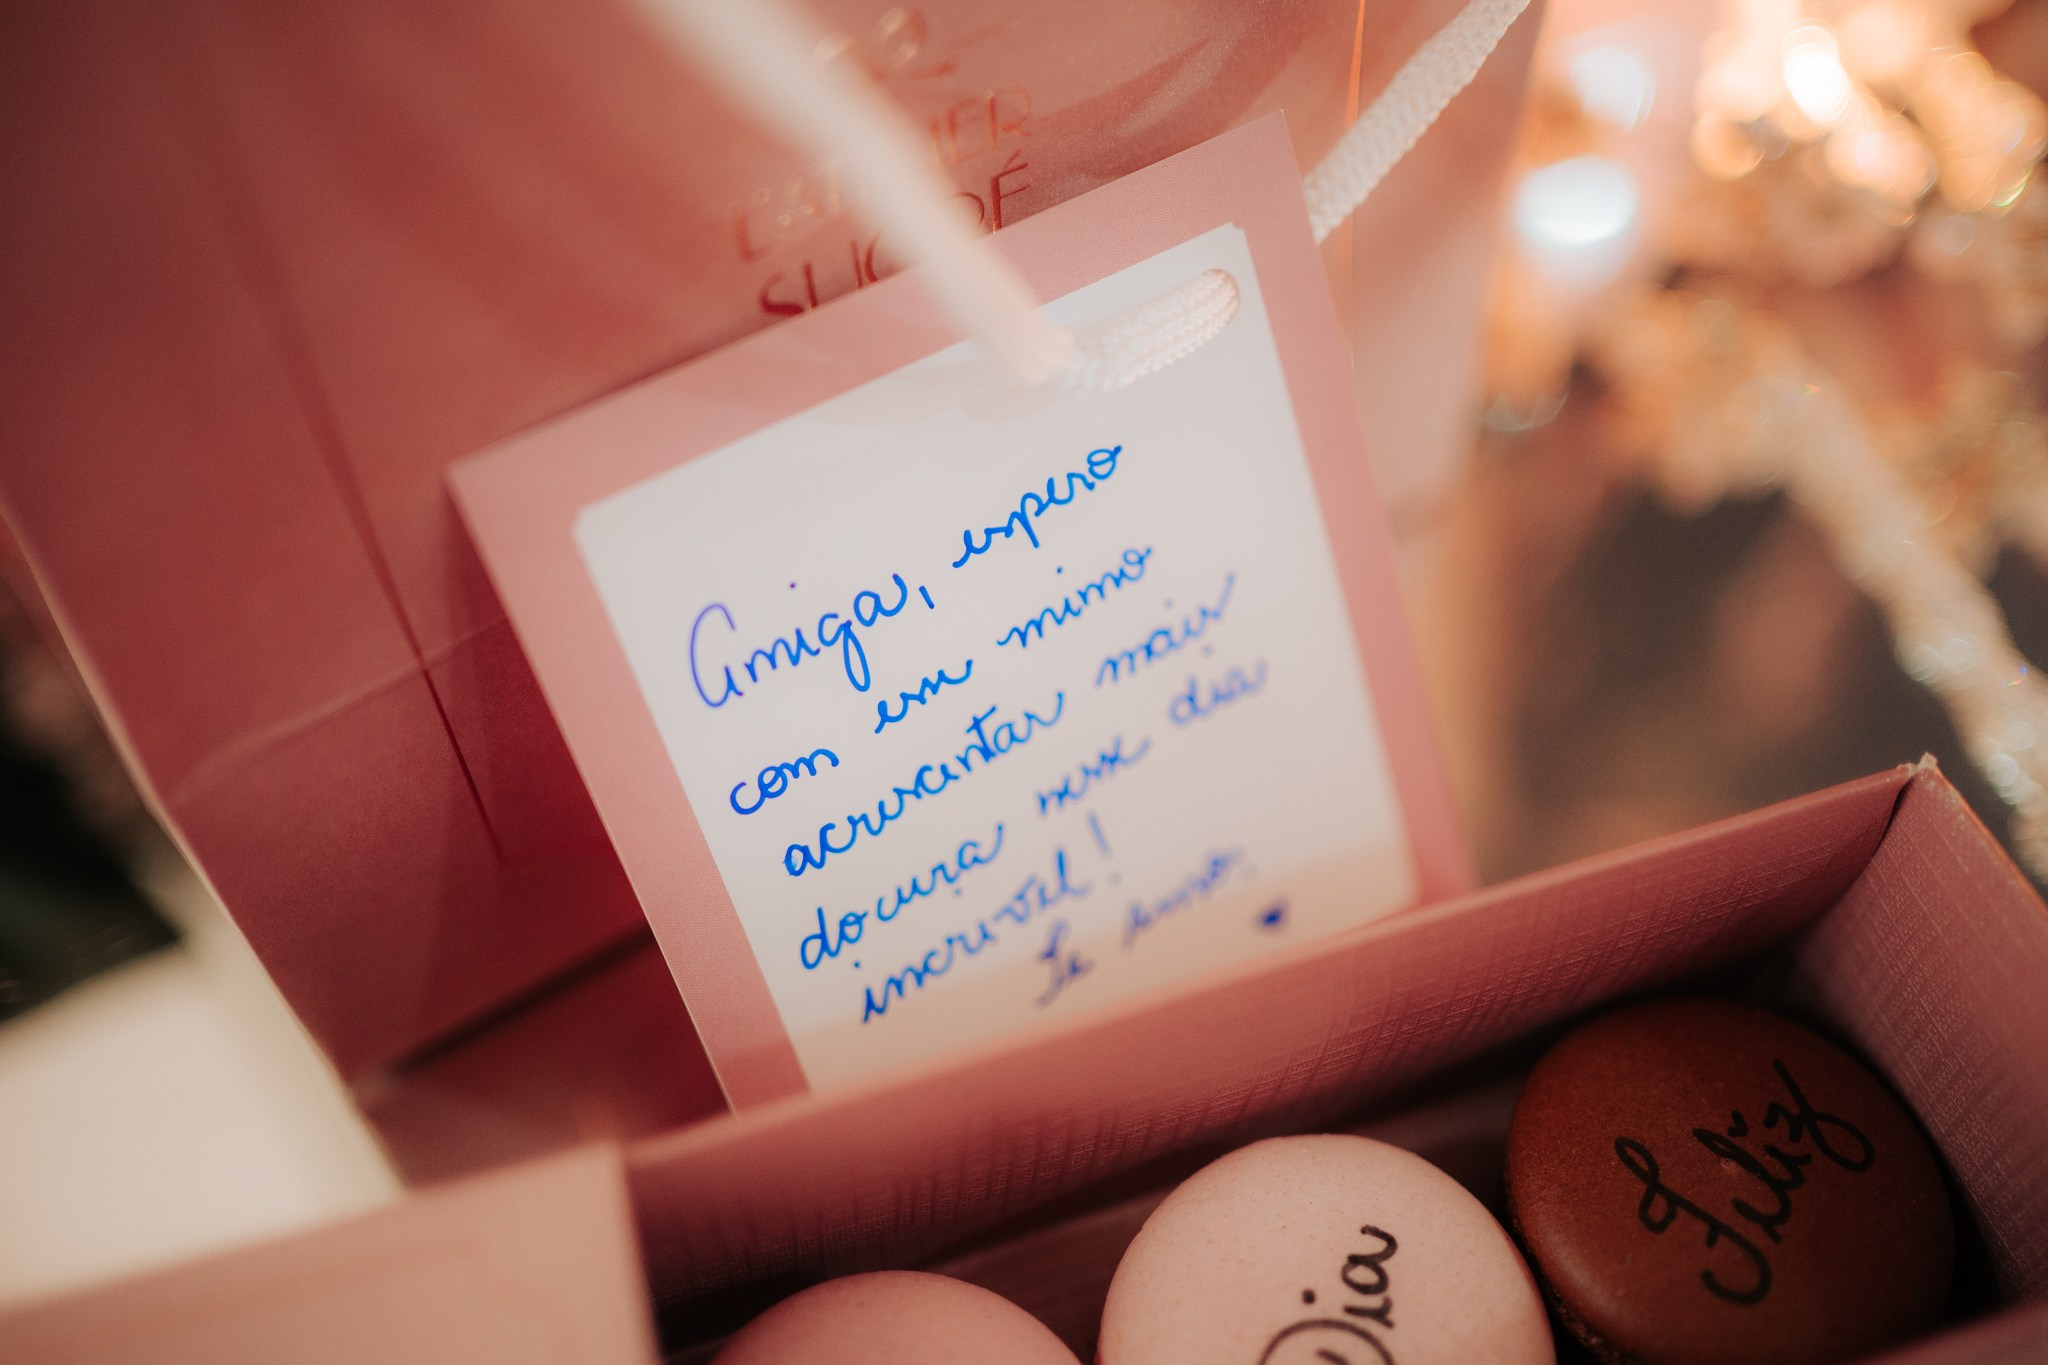 Amiga, espero
com esse mimo
acrescentar mais
doçura nesse dia
incrível!
Te amo,
Dia
Feliz